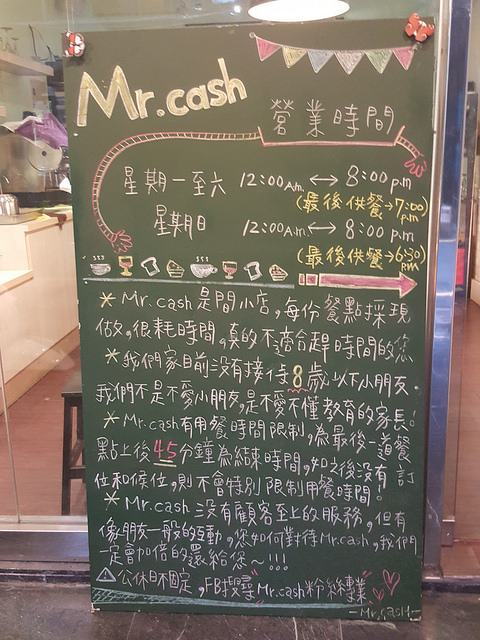 Mr.cash
營業時間
星期一至六 12:00A.m. ↔ 8:00 p.m
(最後供餐→7:00 p.m)
星期日 12:00A.m ↔ 8:00 p.m
(最後供餐→6:30 P.M)
* Mr.cash是間小店,每份餐點採現
做,很耗時間,真的不適合趕時間的您
* 我們家目前沒有接待8歲以下小朋友.
我們不是不愛小朋友,是不愛不懂教育的家長!
* Mr.cash有用餐時間限制,為最後一道餐
點上後45分鐘為結束時間,如之後沒有訂
位和候位,則不會特別限制用餐時間。
* Mr.cash沒有顧客至上的服務,但有
像朋友一般的互動,您如何對待Mr.cash,我們
一定會加倍的還給您~!!!
△公休日不固定,FB搜尋Mr.cash粉絲專業
-Mr.cash-